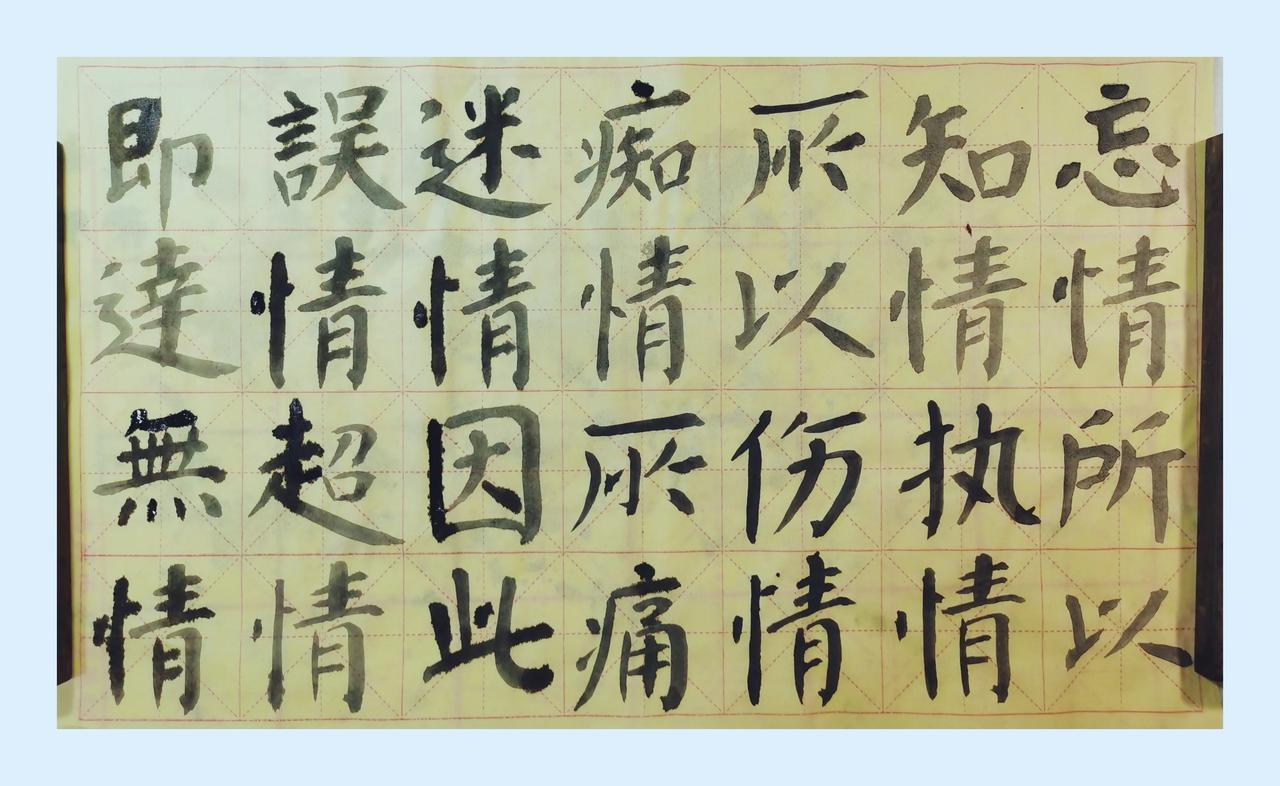 忘情所以
知情执情
所以伤情
痴情所痛
迷情因此
誤情超情
即達無情